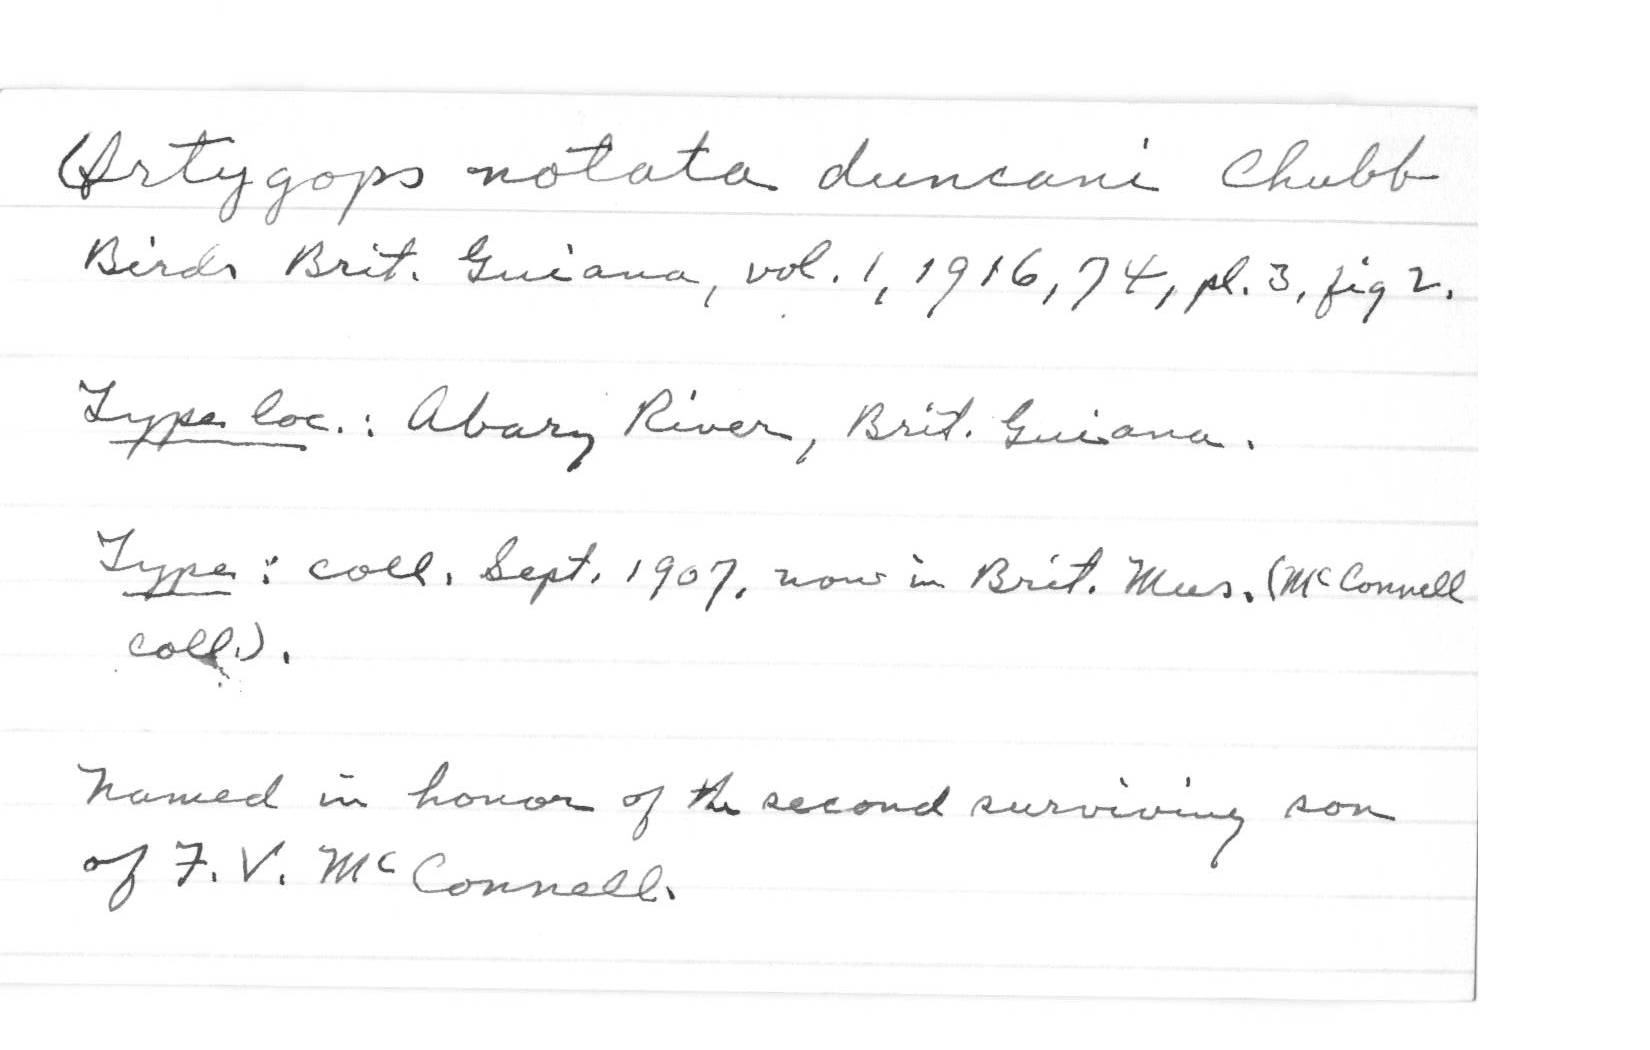 Ortygops notata duncani Chubb
Birds Brit. Guiana, vol. 1, 1916, 74, pl. 3, fig 2.
Type loc.: Abary River, Brit. Guiana.
Type: coll. Sept. 1907, now in Brit. Mus. (McConnell
coll.).
Named in honor of the second surviving son
of F. V. McConnell.